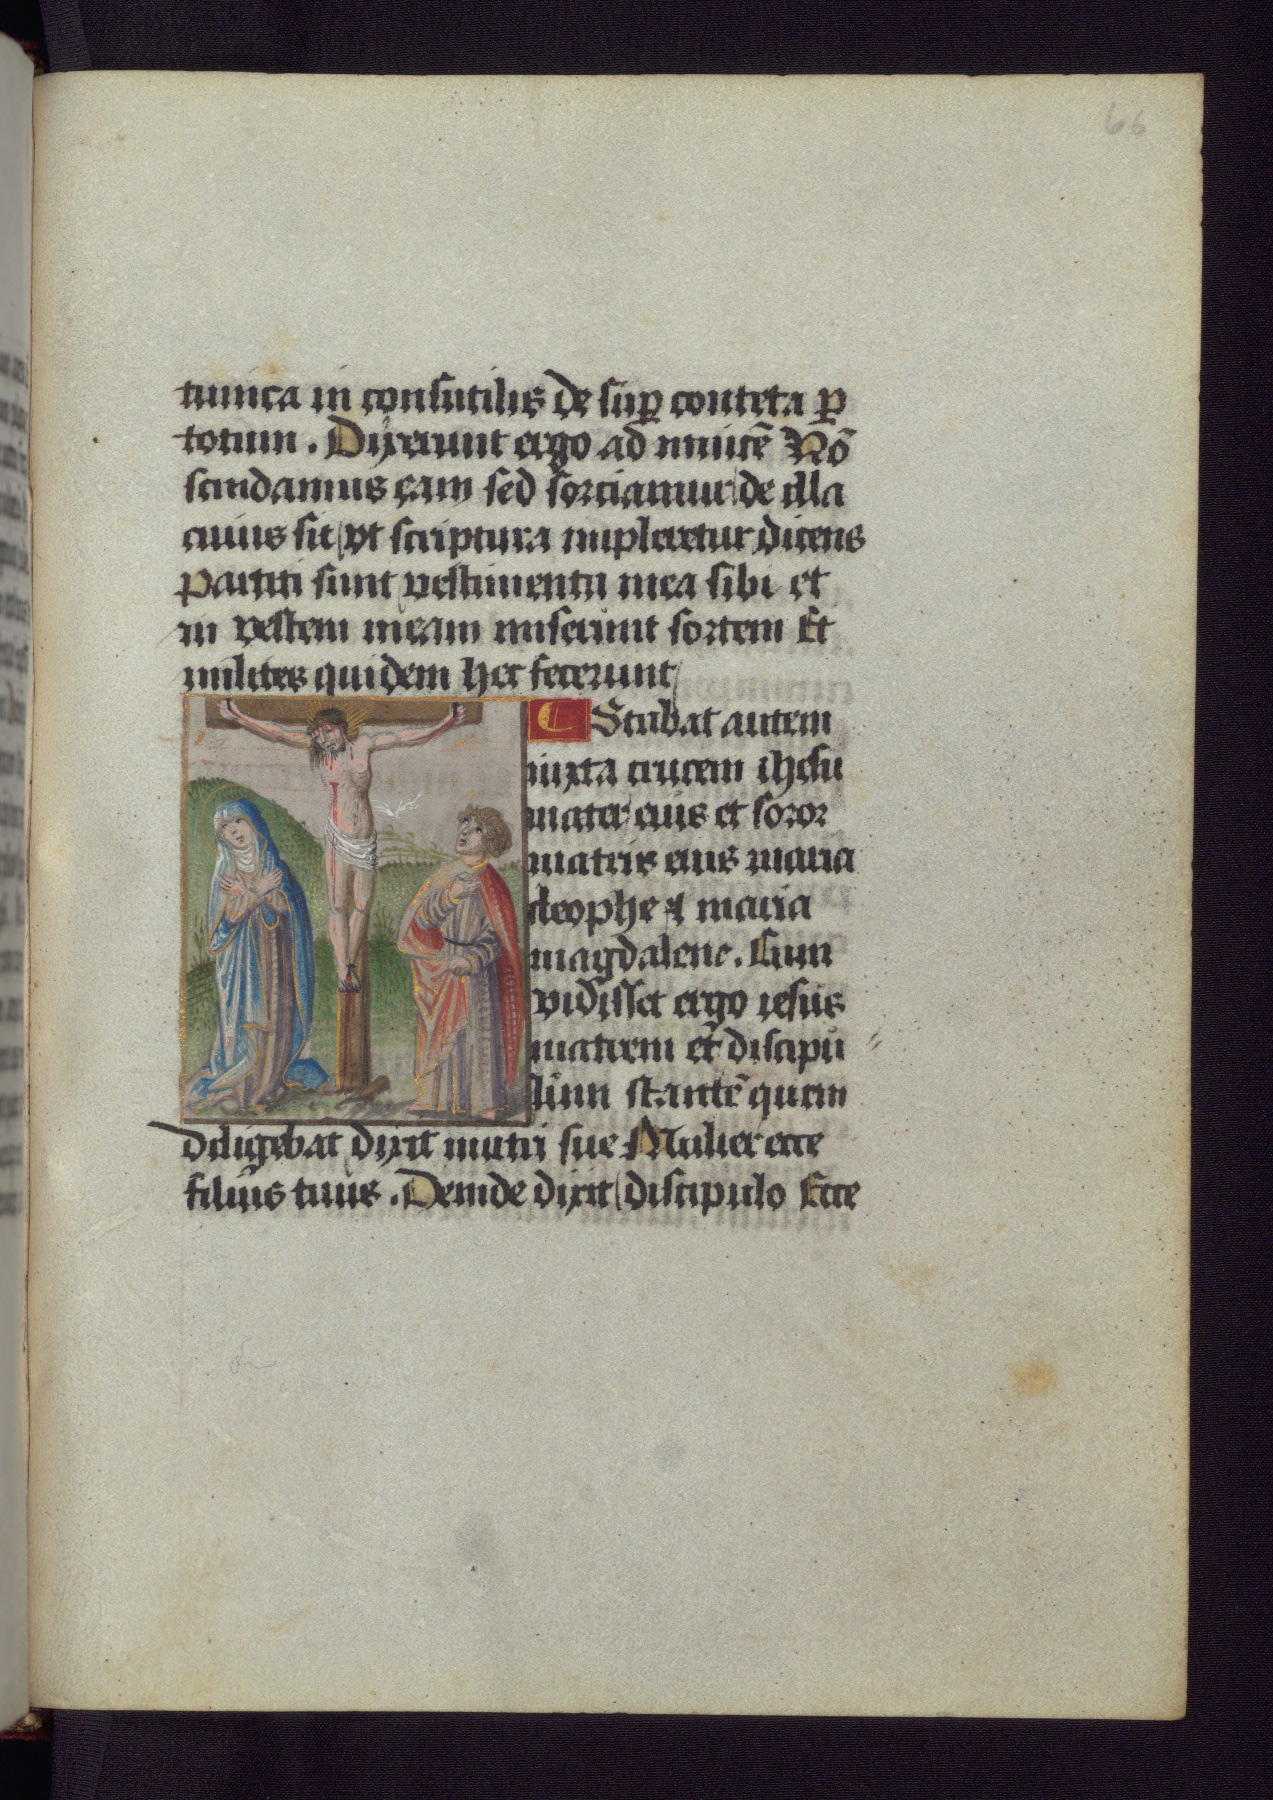 66
tunica in consutilis de sup̱ conteta p̱
totum . Dixerunt ergo ad inuicē Nō
scindamus eam sed sorciamur de illa
cuius sit vt scriptura impleretur dicens
Partiti sunt vestimenta mea sibi et
in vestem meam miserunt sortem Et
milites quidem hec fecerunt
C Stabat autem
iuxta crucem ihesu
mater eius et soror
matris eius maria
cleophe et maria
magdalene . Cum
vidisset ergo iesus
matrem et discipu
lum stantē quem
diligebat dixit matri sue Mulier ecce
filius tuus . Deinde dixit discipulo Ecce